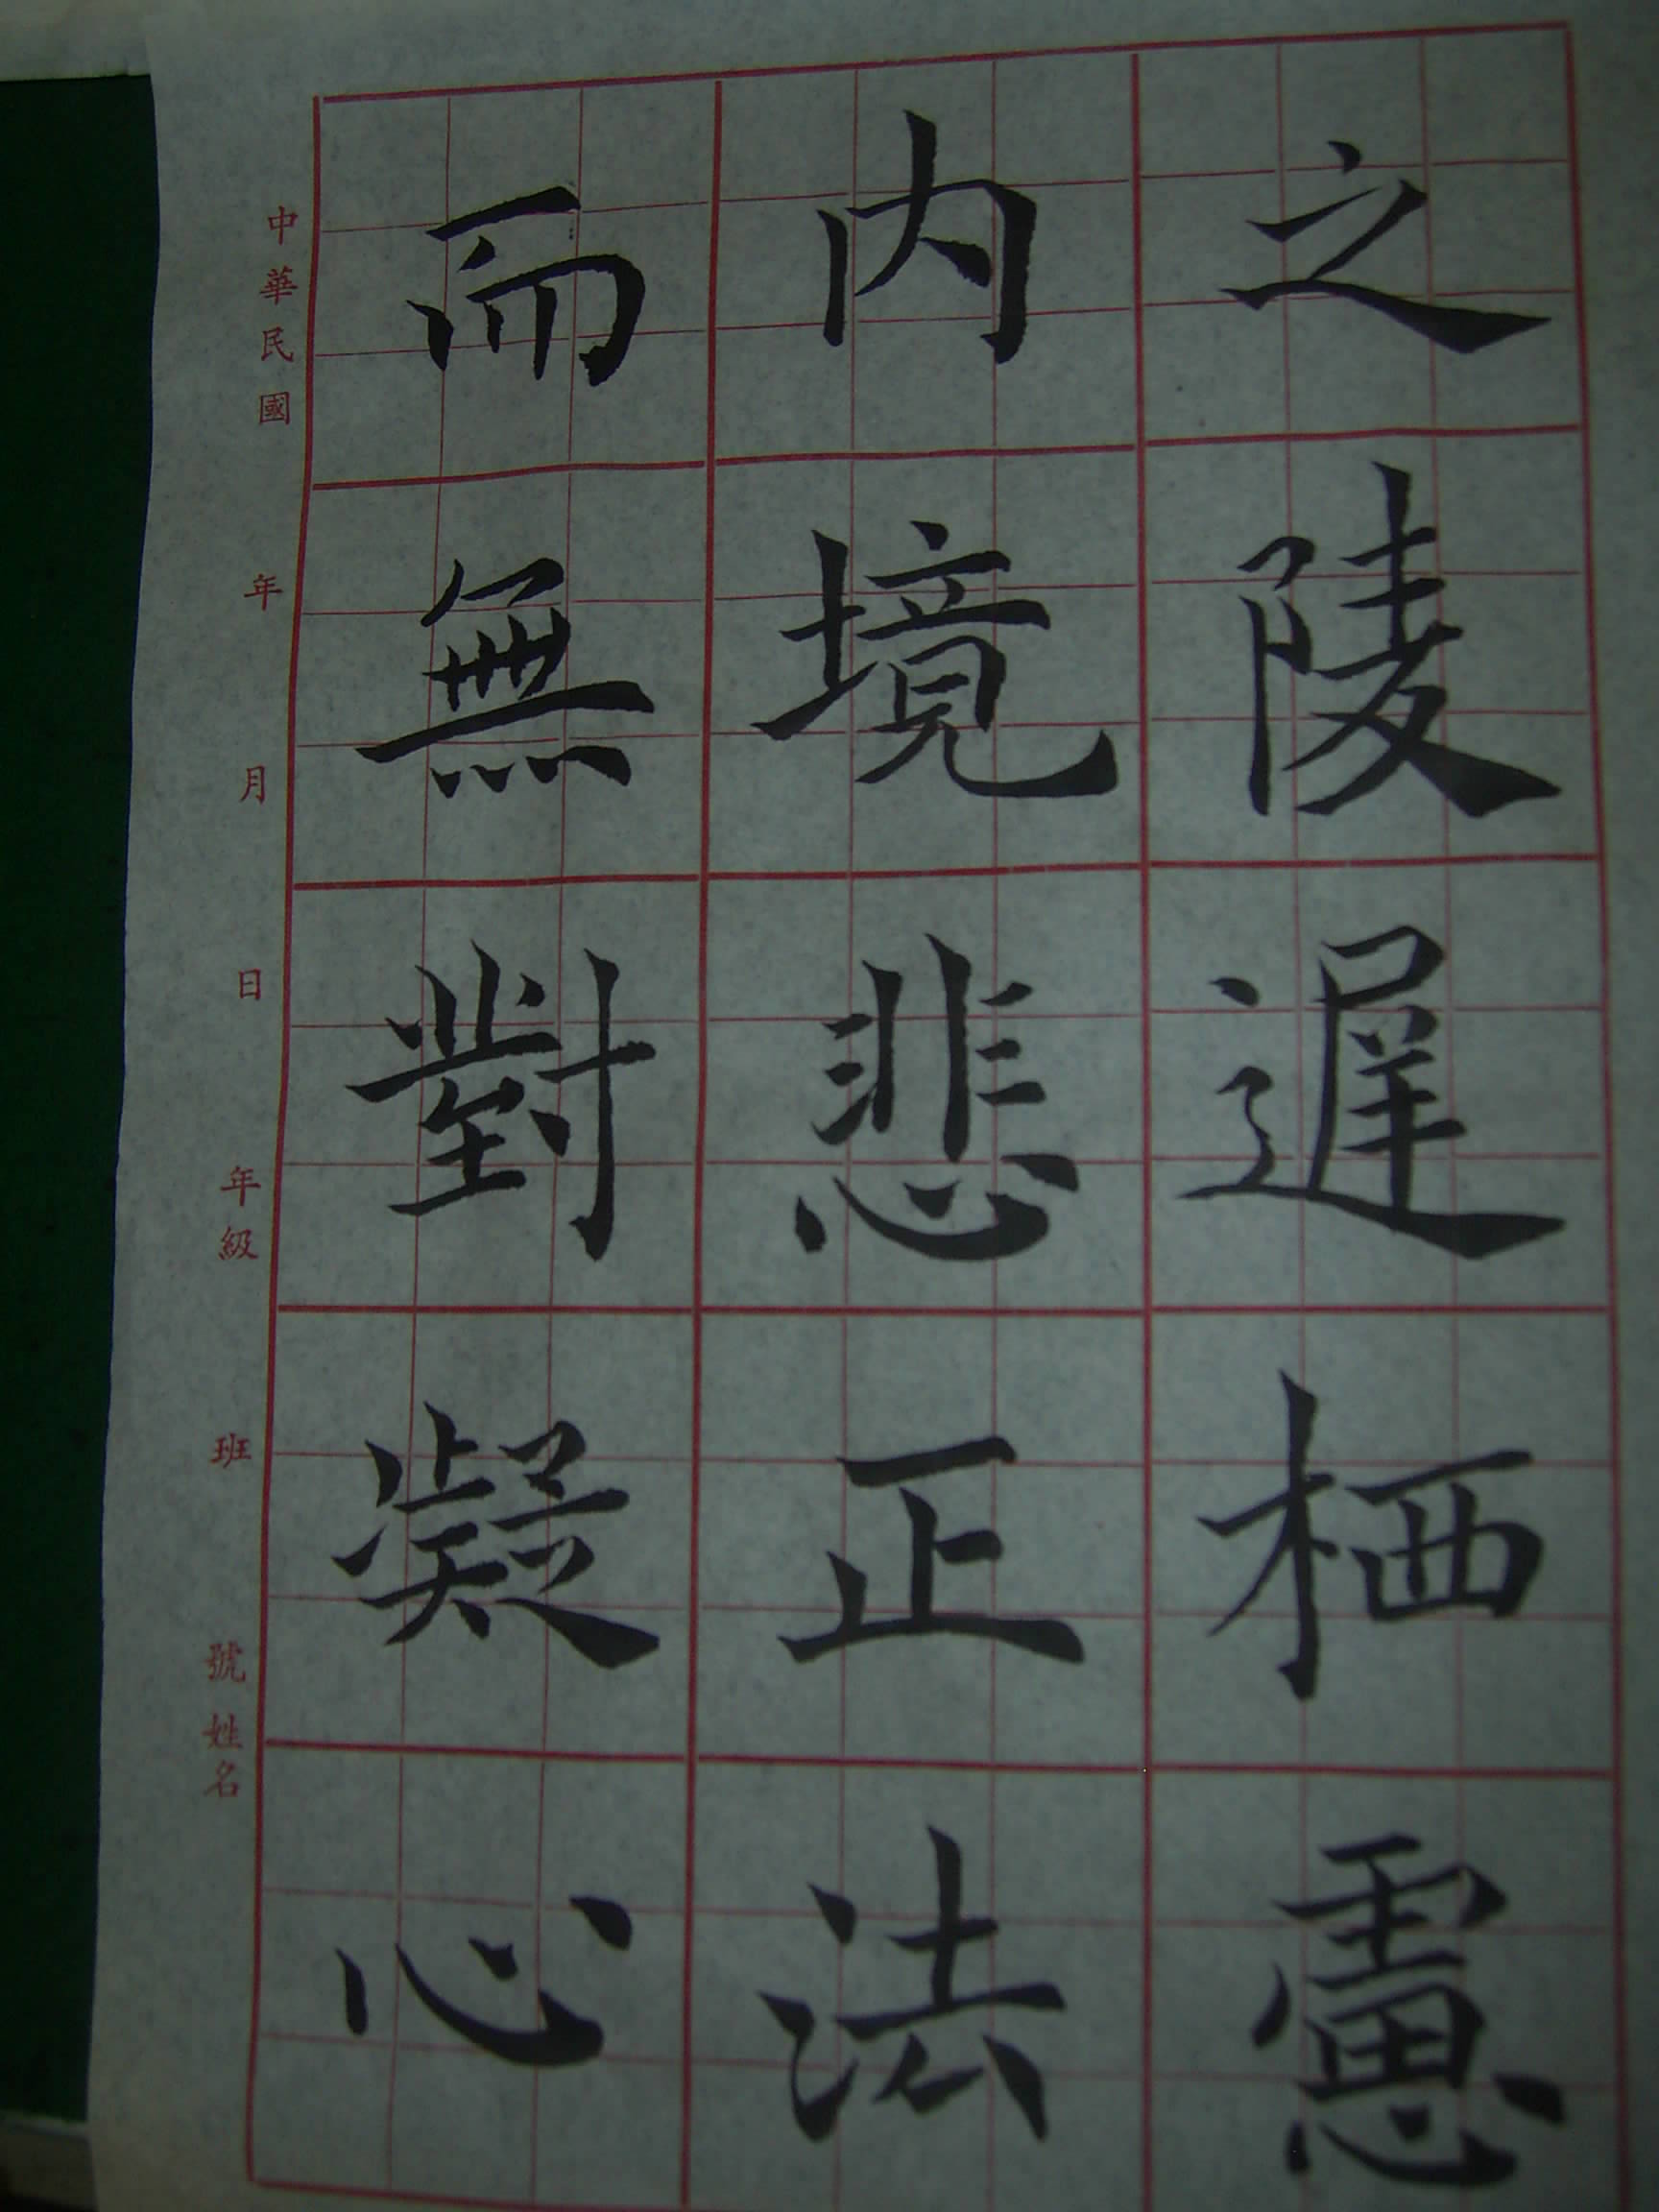 之陵遲栖慮
内境悲正法
而無對凝心
中華民國 年 月 日 年級 班 號 姓名